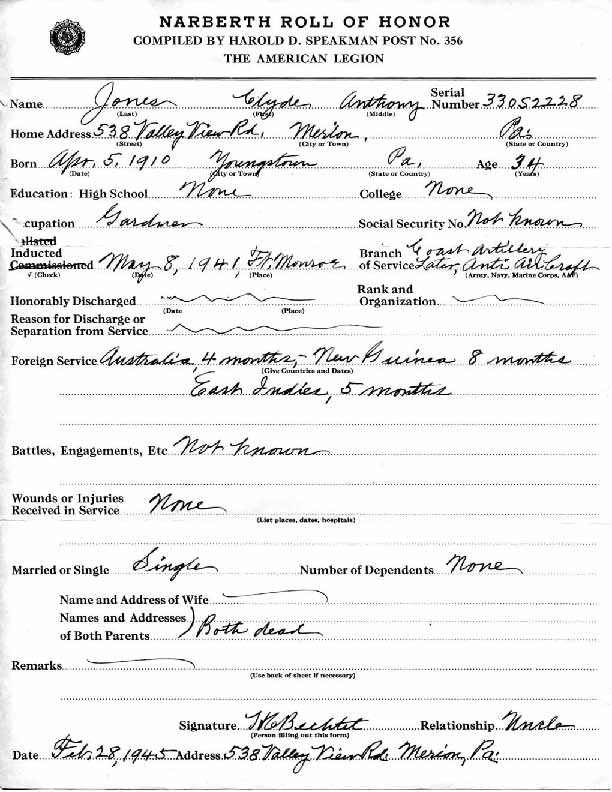 NARBERTH ROLL OF HONOR
COMPILED BY HAROLD D. SPEAKMAN POST No. 356
THE AMERICAN LEGION
Name Jones Clyde Anthony Serial Number 33052228
(Last) (First) (Middle)
Home Address 538 Valley View Rd, Merion, Pa.
(Street) (City or Town) (State or Country)
Born Apr. 5, 1910 Youngstown Pa, Age 34
(Date) (City or Town) (State or Country) (Years)
Education: High School None College None
cupation Gardner Social Security No. Not known
llisted
Inducted May 8, 1941 Ft. Monroe Branch Coast Artillery
Commissioned of Service Later, Anti Air Craft
√ (Check) (Date) (Place) (Army, Navy, Marine Corps, AAF)
Honorably Discharged Rank and Organization
(Date (Place)
Reason for Discharge or
Separation from Service
Foreign Service Australia, 4 months, - New Guinea 8 months
(Give Countries and Dates)
East Indies, 5 months
Battles, Engagements, Etc Not known
Wounds or Injuries
Received in Service None
(List places, dates, hospitals)
Married or Single Single Number of Dependents None
Name and Address of Wife
Names and Addresses
of Both Parents Both dead
Remarks
(Use back of sheet if necessary)
Signature Relationship Uncle
(Person filling out this form)
Date Feb. 28, 1945 Address 538 Valley View Rd. Merion, Pa.